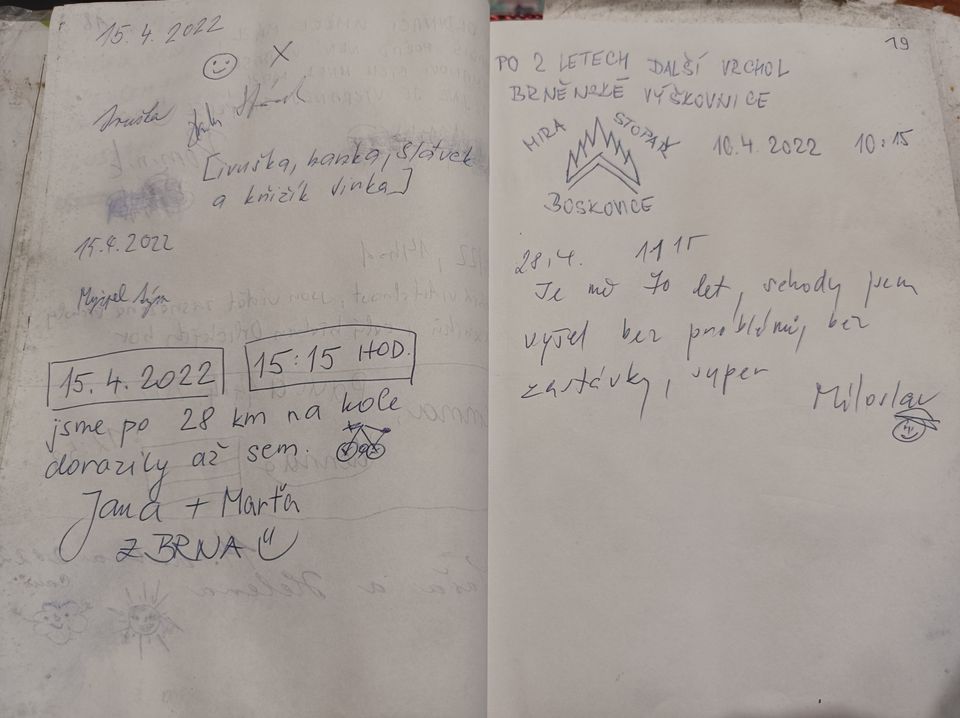 15.4.2022
X
[ivuška, hanka, slávek
a křižík vinka]
15.4.2022
15.4.2022 15:15 HOD.
jsme po 28 km na kole
dorazily až sem.
Jana + Marťa
Z BRNA
19
PO 2 LETECH DALŠÍ VRCHOL
BRNĚNSKÉ VÝŠKOVNICE
MIRA STOPAR 10.4.2022 10:15
BOSKOVICE
28.4. 11 15
Je mě 70 let, schody jsem
vyšel bez problémů, bez
zastávky, super
Miloslav